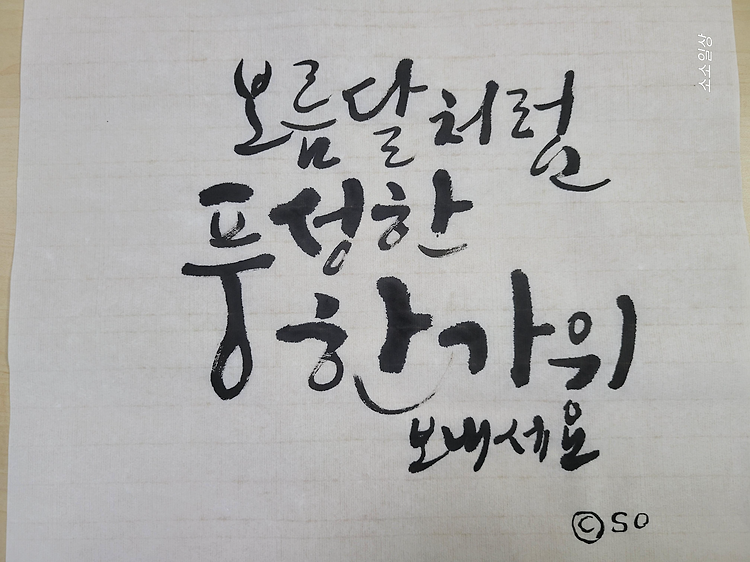 보름달처럼
풍성한
한가위
보내세요
©so